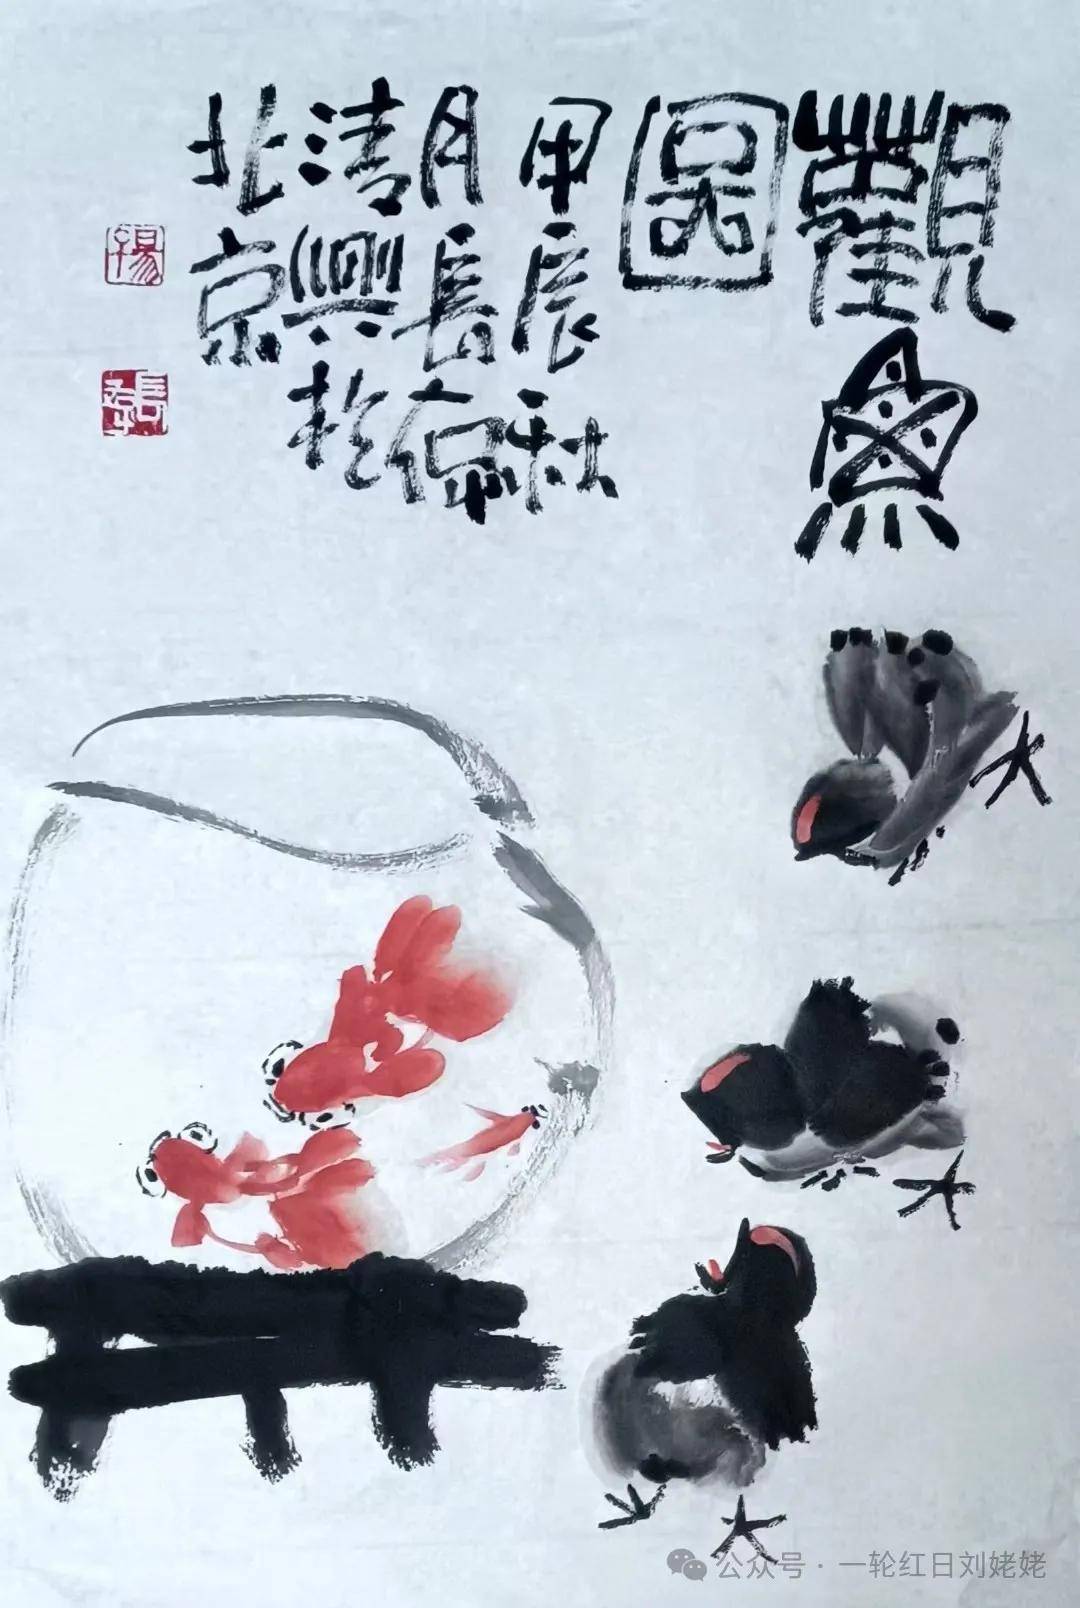 觀魚
圖
甲辰秋
月長倞
清興於
北京
楊
公众号 · 一轮红日刘姥姥